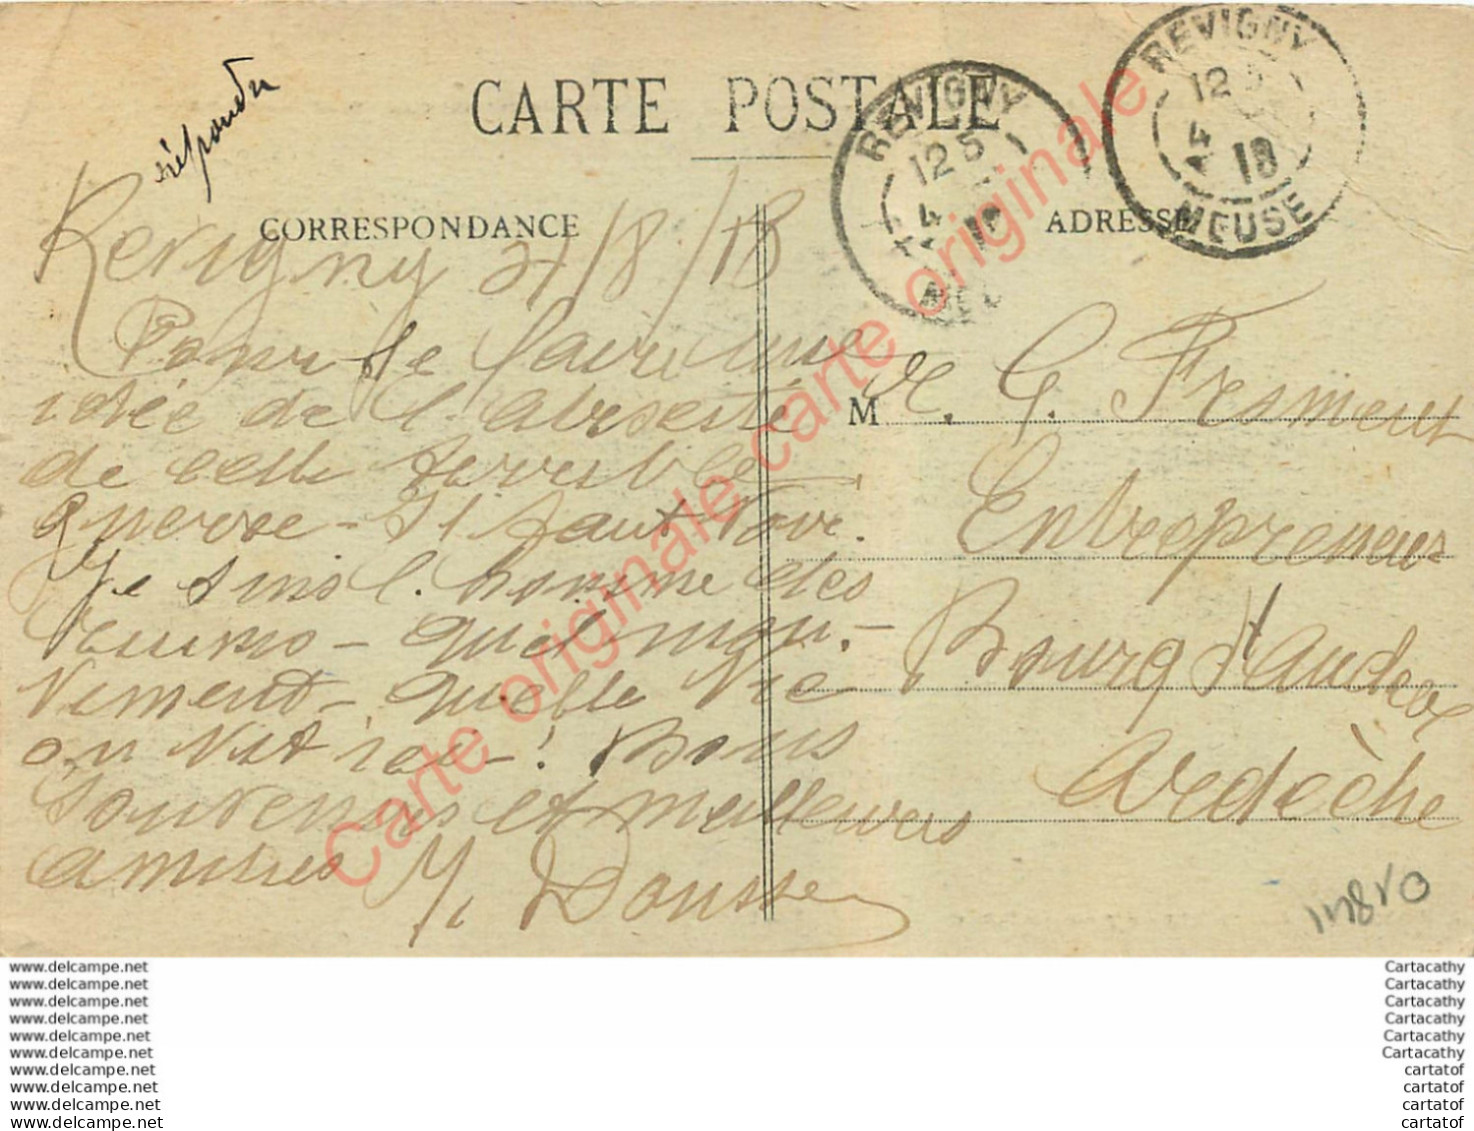 répondu
CARTE POSTALE
REVIGNY
12 5
4
MEU
REVIGNY
12 5
4
18
MEUSE
CORRESPONDANCE
ADRESSE
Revigny 21/8/18
Pour te faire une
idée de l'absurdité
de cette terrible
guerre - Il faut vivre.
Je suis l'homme des
ruines - quel mou-
vement - quelle vie
on vit ici - ! Bons
souvenirs et meilleures
amitiés
M. G. Fresment
Entrepreneur
Bourg St Andéol
Ardèche
Carte originale carte originale carte originale
www.delcampe.net
www.delcampe.net
www.delcampe.net
www.delcampe.net
www.delcampe.net
www.delcampe.net
www.delcampe.net
www.delcampe.net
www.delcampe.net
www.delcampe.net
Cartacathy
Cartacathy
Cartacathy
Cartacathy
Cartacathy
Cartacathy
cartatof
cartatof
cartatof
cartatof